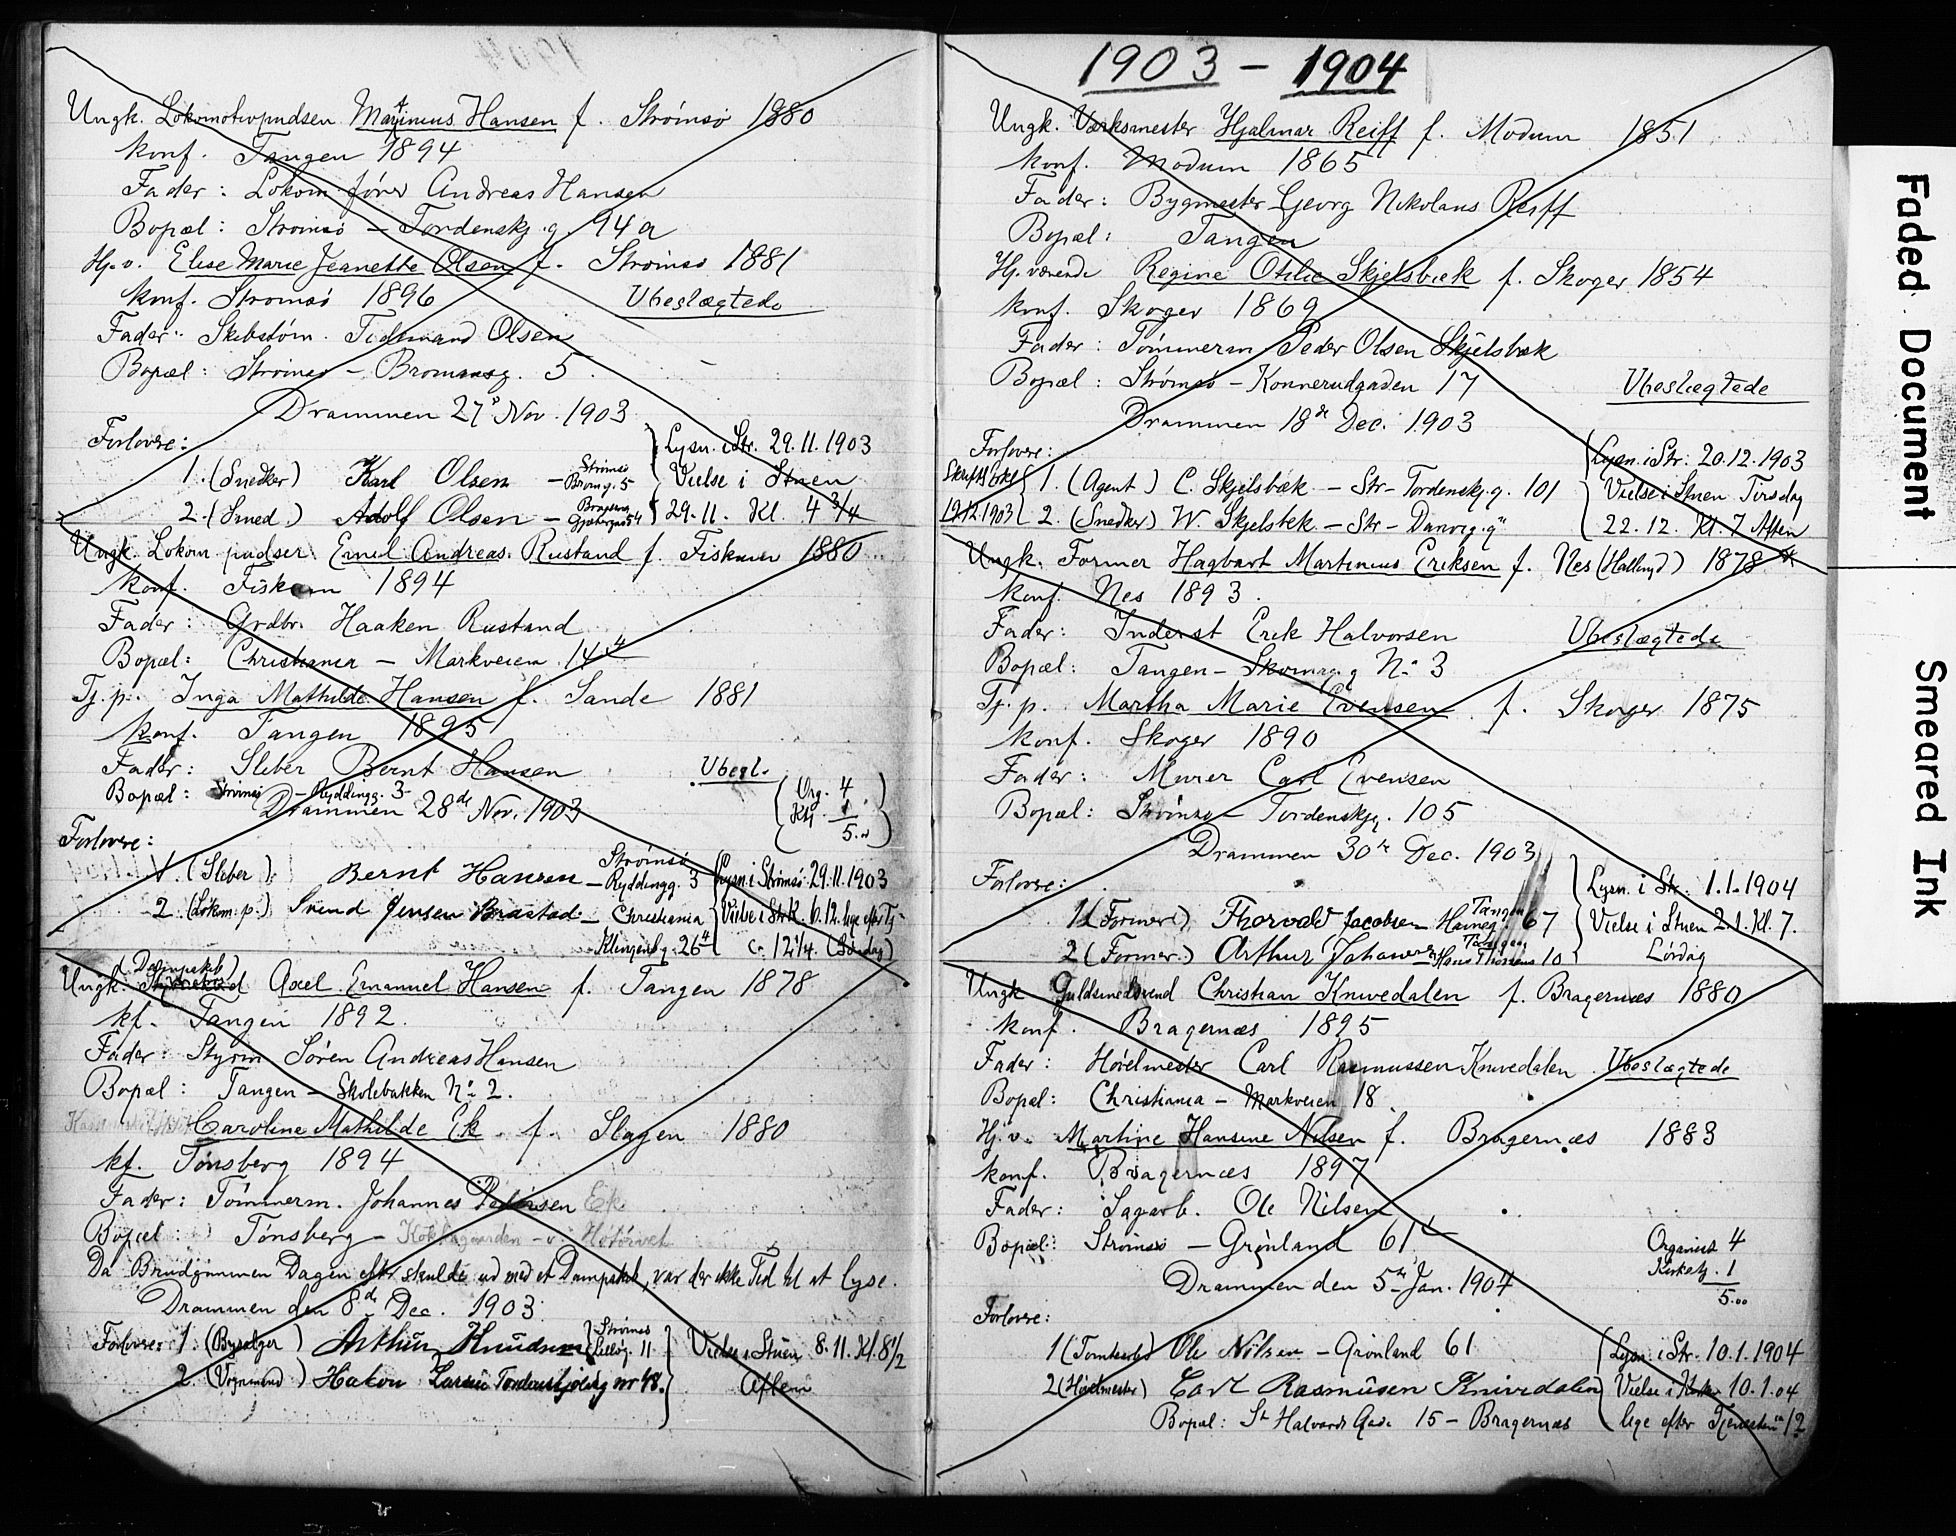 Ungk. Lokomotivpudsen Martinius Hansen f. Strømsø 1880
konf. Tangen 1894
Fader: Lokom.fører Andreas Hansen
Bopæl: Strømsø – Tordenskj.g. 94 a
Hj.v. Elise Marie Jeanette Olsen f. Strømsø 1881
konf. Strømsø 1896 Ubeslægtede
Fader: Skibstøm. Tidemand Olsen
Bopæl: Strømsø – Bromansg. 5
Drammen 27 Nov. 1903
Forlovere:
1. (Snedker) Karl Olsen – Strømsø Bromg. 5
2. (Smed.) Adolf Olsen –
Lysn. i Str. 29.11.1903
Vielse i Stuen
29.11. Kl. 4 3/4
Ungk. Lokom pudser Emil Andreas Rustand f. Fiskum 1880
konf. Fiskum 1894
Fader: Grdbr. Haaken Rustand
Bopæl: Christiania – Markveien 14
Tj.p. Inga Mathilde Hansen f. Sande 1881
konf. Tangen 1895
Fader: Sliber Bernt Hansen Ubesl.
Bopæl: Strømsø – Ryddingg. 3
Drammen 28de Nov. 1903
Org. 4
Ktj. 1
5.
Forlovere:
1. (Sliber) Bernt Hansen – Strømsø Ryddingg. 3
2. (Lokom.p.) Svend Jensen Braastad – Christiania Klingenbg. 26
Lysn. i Strømsø 29.11.1903
Vielse i Str.K. 6.12. lige efter Tj.
c. 12 1/4. (Søndag)
(Dampskib)
Ungk. Axel Emanuel Hansen f. Tangen 1878
kf. Tangen 1892.
Fader: Styrm Søren Andreas Hansen
Bopæl: Tangen – Skolebakken No 2.
Caroline Mathilde Ek f. Slagen 1880
kf. Tønsberg 1894
Fader: Tømmerm. Johannes Petersen Ek
Bopæl: Tønsberg – Kokkegaarden – v. Høtorvet
Da Brudgommen Dagen efter skulde ud med et Dampskib, var der ikke Tid til at lyse.
Drammen den 8de Dec. 1903
Forlovere: 1. (Bysælger) Arthur Knudsen Strømsø 11
2. (Vognmand) Hakon Larsen Tordenskjoldsg nr 48.
Vielse i Stuen 8.11. Kl. 8 1/2
Aften
1903 – 1904
Ungk. Værksmester Hjalmar Reiff f. Modum 1851
konf. Modum 1865
Fader: Bygmester Georg Nikolaus Reiff
Bopæl: Tangen
Hj. værende Regine Otilie Skjelsbæk f. Skoger 1854
konf. Skoger 1869
Fader: Tømmerm Peder Olsen Skjelsbæk
Bopæl: Strømsø – Konnerudgaden 17 Ubeslægtede
Drammen 18de Dec. 1903
Forlovere:
19.12.1903
1. (Agent) C. Skjelsbæk – Str – Tordenskj.g. 101
2. (Snedker) W. Skjelsbæk – Str – Danvig.g
Lysn. i Str. 20.12.1903
Vielse i Stuen Tirsdag
22.12. Kl. 7 Aften
Ungk. Former Hagbart Martinius Eriksen f. Nes (Hallingd) 1878
konf. Nes 1893.
Fader: Inderst Erik Halvorsen Ubeslægtede
Bopæl: Tangen – Skomag.g No 3
Tj.p. Martha Marie Evensen f. Skoger 1875
konf. Skoger 1890
Fader: Murer Carl Evensen
Bopæl: Strømsø – Tordenskjg. 105
Drammen 30te Dec. 1903
Forlovere:
1. (Former) Thorvald Jacobsen Tangen Havneg. 67
2 (Former.) Arthur Johansen Tangen Hans Thornes 10
Lysn. i Str. 1.1.1904
Vielse i Stuen 2.1. Kl. 7.
Lørdag
Ungk Guldsmedsvend Christian Knivedalen f. Bragernæs 1880
konf. Bragernæs 1895
Fader: Høvelmester Carl Rasmussen Knivedalen Ubeslægtede
Bopæl: Christiania – Markveien 18
Hj.v. Martine Hansine Nilsen f. Bragernæs 1883
konf. Bragernæs 1897
Fader: Sagarb. Ole Nilsen
Bopæl: Strømsø – Grønland 61
Organist 4
Kirketj. 1
5.00
Drammen den 5te Jan. 1904
Forlovere:
1 (Tomtearb) Ole Nilsen – Grønland 61
2 (Høvelmester) Carl Rasmusen Knivedalen
Bopæl: St Halvards Gade 15 – Bragernæs
Lysn. i Str. 10.1.1904
Vielse i Kirke 10.1.04
lige efter Tjenesten 12
Faded Document
Smeared Ink